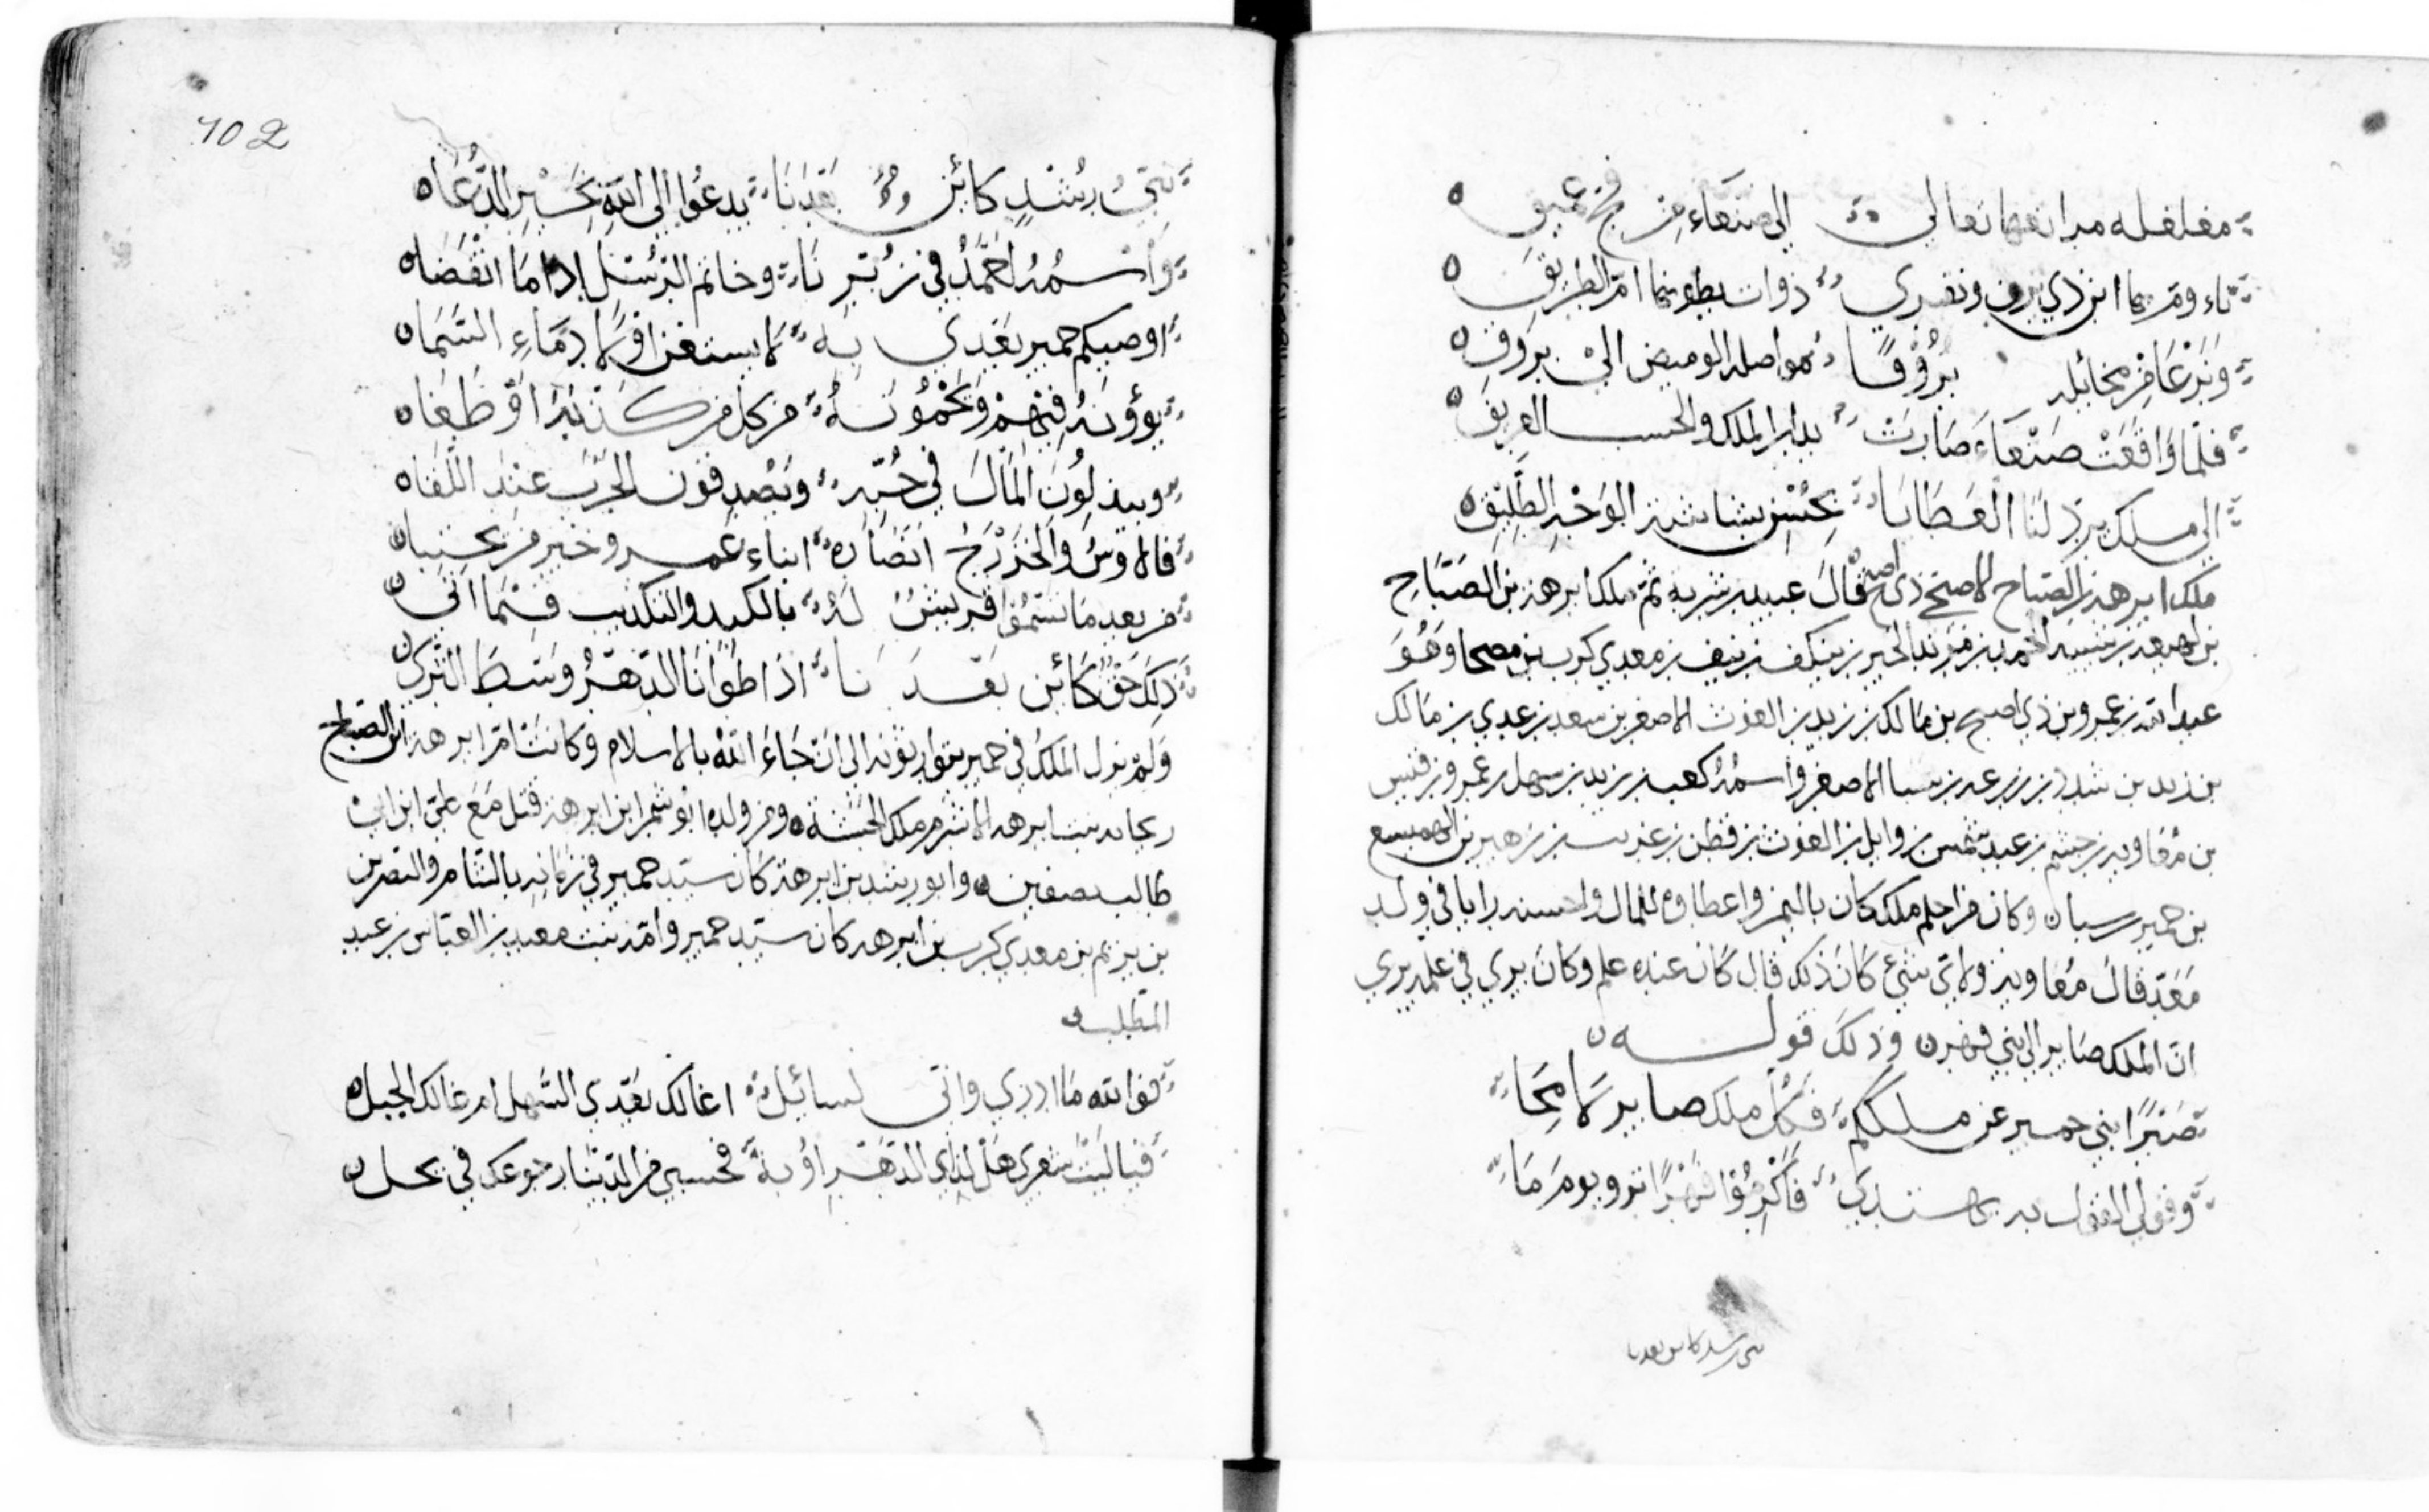 مغلغله مراتعها تعالى الى صنعاء من فج عميق
ابن ذي يزن وتفري ذوات بطونها ام الطريق
من مخائله بروقا مواصلة الوميض الى بروق
فلما وافقت صنعاء صارت بدار الملك والحسب العريق
الى ملك يرد لنا العطايا بحسن بشاشة الوجه الطليق
ملك ابرهة بن الصباح قال عبيد بن شرية ثم ملك ابرهة بن الصباح
بن لهيعة بن شيبة الحمد بن مرثد الخير بن ينكف بن ينف بن معدي كرب بن مصحا وهو
عبد الله بن عمرو بن ذي اصبح بن مالك بن زيد بن الغوث الاصغر بن سعد بن عدي بن مالك
بن زيد بن شدد بن زرعه بن سبا الاصغر واسمه كعب بن زيد بن سهل بن عمرو بن قيس
بن معاوية بن جشم بن عبد شمس بن وايل بن الغوث بن قطن بن عريب بن زهير بن الهميسع
بن حمير بن سبا ه وكان من احلم ملك كان باليمن واعطاه للمال واحسنه رايا في ولد
معد قال معاوية ولاي شئ كان ذلك قال كان عنده علم وكان يري في علمه يري
ان الملك صاير الى بني فهر ه وذلك قوله ه
صبرا بني حمير عن ملككم فكل ملك صاير لامحا
وقولي القول به فاكرموا فهرا يوم ما
102
نبي رشد كائن بعدنا يدعوا الى الله بخير الدعا ه
واسمه احمد في زبرنا وخاتم الرسل اذا ما انقضا ه
اوصيكم حمير بعدي به لا يستفزا ولا دماء السما ه
يؤونه فيهم ويحمونه من كل من كذبه او طغا ه
ويبذلون المال في حبه ويصدقون الحرب عند اللقا ه
فالاوس والخزرج انصاره ابناء عمرو خير من يجتبا ه
من بعد ما تسموا قريش له بالكيد والتكذيب فيما اتى ه
ذلك حق كائن بعدنا اذا طوانا الدهر وسط الثرى ه
ولم يزل الملك في حمير يتوارثونه الى ان جاء الله بالاسلام وكانت ام ابرهة ابن الصباح
ريحانة بنت ابرهه الاشرم ملك الحبشة ه ومن ولده ابو شمر ابن ابرهة قتل مع علي ابن ابي
طالب بصفين ه وابو رشد بن ابرهة كان سيد حمير في زمانه بالشام والنضر بن
بن يريم بن معدي كرب بن ابرهه كان سيد حمير وامه بنت معبد بن العباس بن عبد
المطلب ه
فوالله ما ادري واني لسائل اغالك بعدي السهل ام غالك الجبل ه
فيا ليت شعري هل لذاي الدهر اوبة فحسبي من الدنيا رجوعك في بجل ه